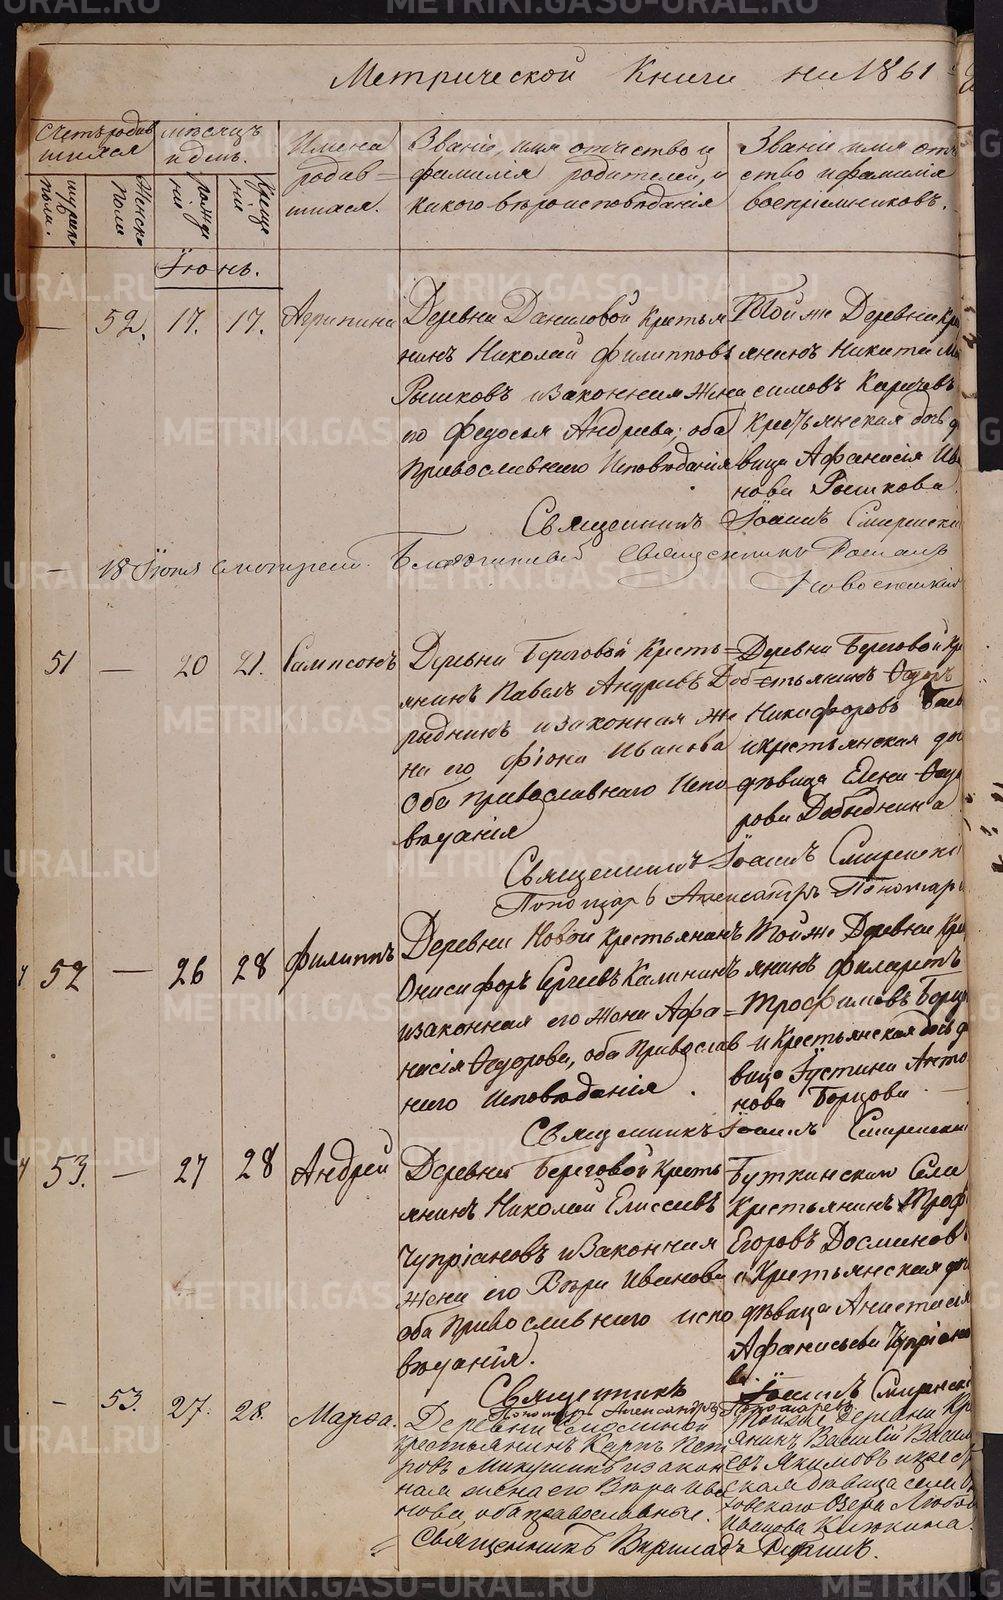 Метрической Книги на 1861
Счетъ родив
шихся
мѣсяцъ
и день.
Имена
родив=
шихся.
Званіе, имя отчество и
фамилія родителей, и
какого вѣроисповѣданія
Званіе имя отче
ство и фамилія
воспріемниковъ.
мужеска
пола.
Женска
пола
рожде
нія
креще-
нія
Іюнь.
— 52. 17. 17. Агрипина
Деревни Даниловой Крестья
нинъ Николай Филипповъ
Рышковъ и законная жена
его Федосья Андреева оба
Православнаго Исповѣданія
Той же Деревни Кре
янинъ Никита Ма
симовъ Карачевъ
Крестьянская дочь д
вица Афанасія Ива
нова Рышкова
Священникъ Іоаннъ Смиренскі
— 18 Іюня смотрелъ. Благочинный Священникъ
51 — 20 21. Сампсонъ
Деревни Береговой Кресть=
янинъ Павелъ Андреевъ Доб
рыднинъ и законная же
на его Фіона Иванова
Оба православнаго Испо
вѣданія
Деревни Береговой Кре
стьянинъ Ѳедоръ
Никифоровъ
и крестьянская до
дѣвица Елена Ѳедо
рова Добрыднина
Священникъ Іоаннъ Смиренскі
Пономарь Александръ Пономарев
52 — 26 28 Филиппъ
Деревни Новой крестьянинъ
Онисифоръ Сергѣевъ Калининъ
и законная его жена Афа=
насія Ѳедорова, оба Православ
наго Исповѣданія
Той же Деревни Кре
янинъ Филаретъ
Трофимовъ Борцо
и Крестьянская дочь д
вица Іустина Анто
нова Борцова
Священникъ Іоаннъ Смиренскі
53. — 27 28 Андрей
Деревни Береговой Кресть
янинъ Николай Елисеевъ
Чупріановъ и Законная
Жена его Вѣра Иванова
оба Православнаго испо
вѣданія.
Буткинскаго Села
Крестьянинъ Троф
Егоровъ Досмановъ
и Крестьянская до
дѣвица Анастасія
Афанасьева Чупріано
ва.
Священникъ Іоаннъ Смиренскі
Пономарь Александръ Пономаревъ
— 53. 27. 28. Марѳа.
Деревни Смолиной
крестьянинъ Карпъ Пет
ровъ Микушинъ и закон
ная жена его Вѣра Ива
нова, оба православные.
Тойже Деревни Кр
янинъ Василій Васил
евъ Якимовъ и кре
ская дѣвица села
ровскаго Озера Любов
Иванова
Священникъ
METRIKI.GASO-URAL.RU